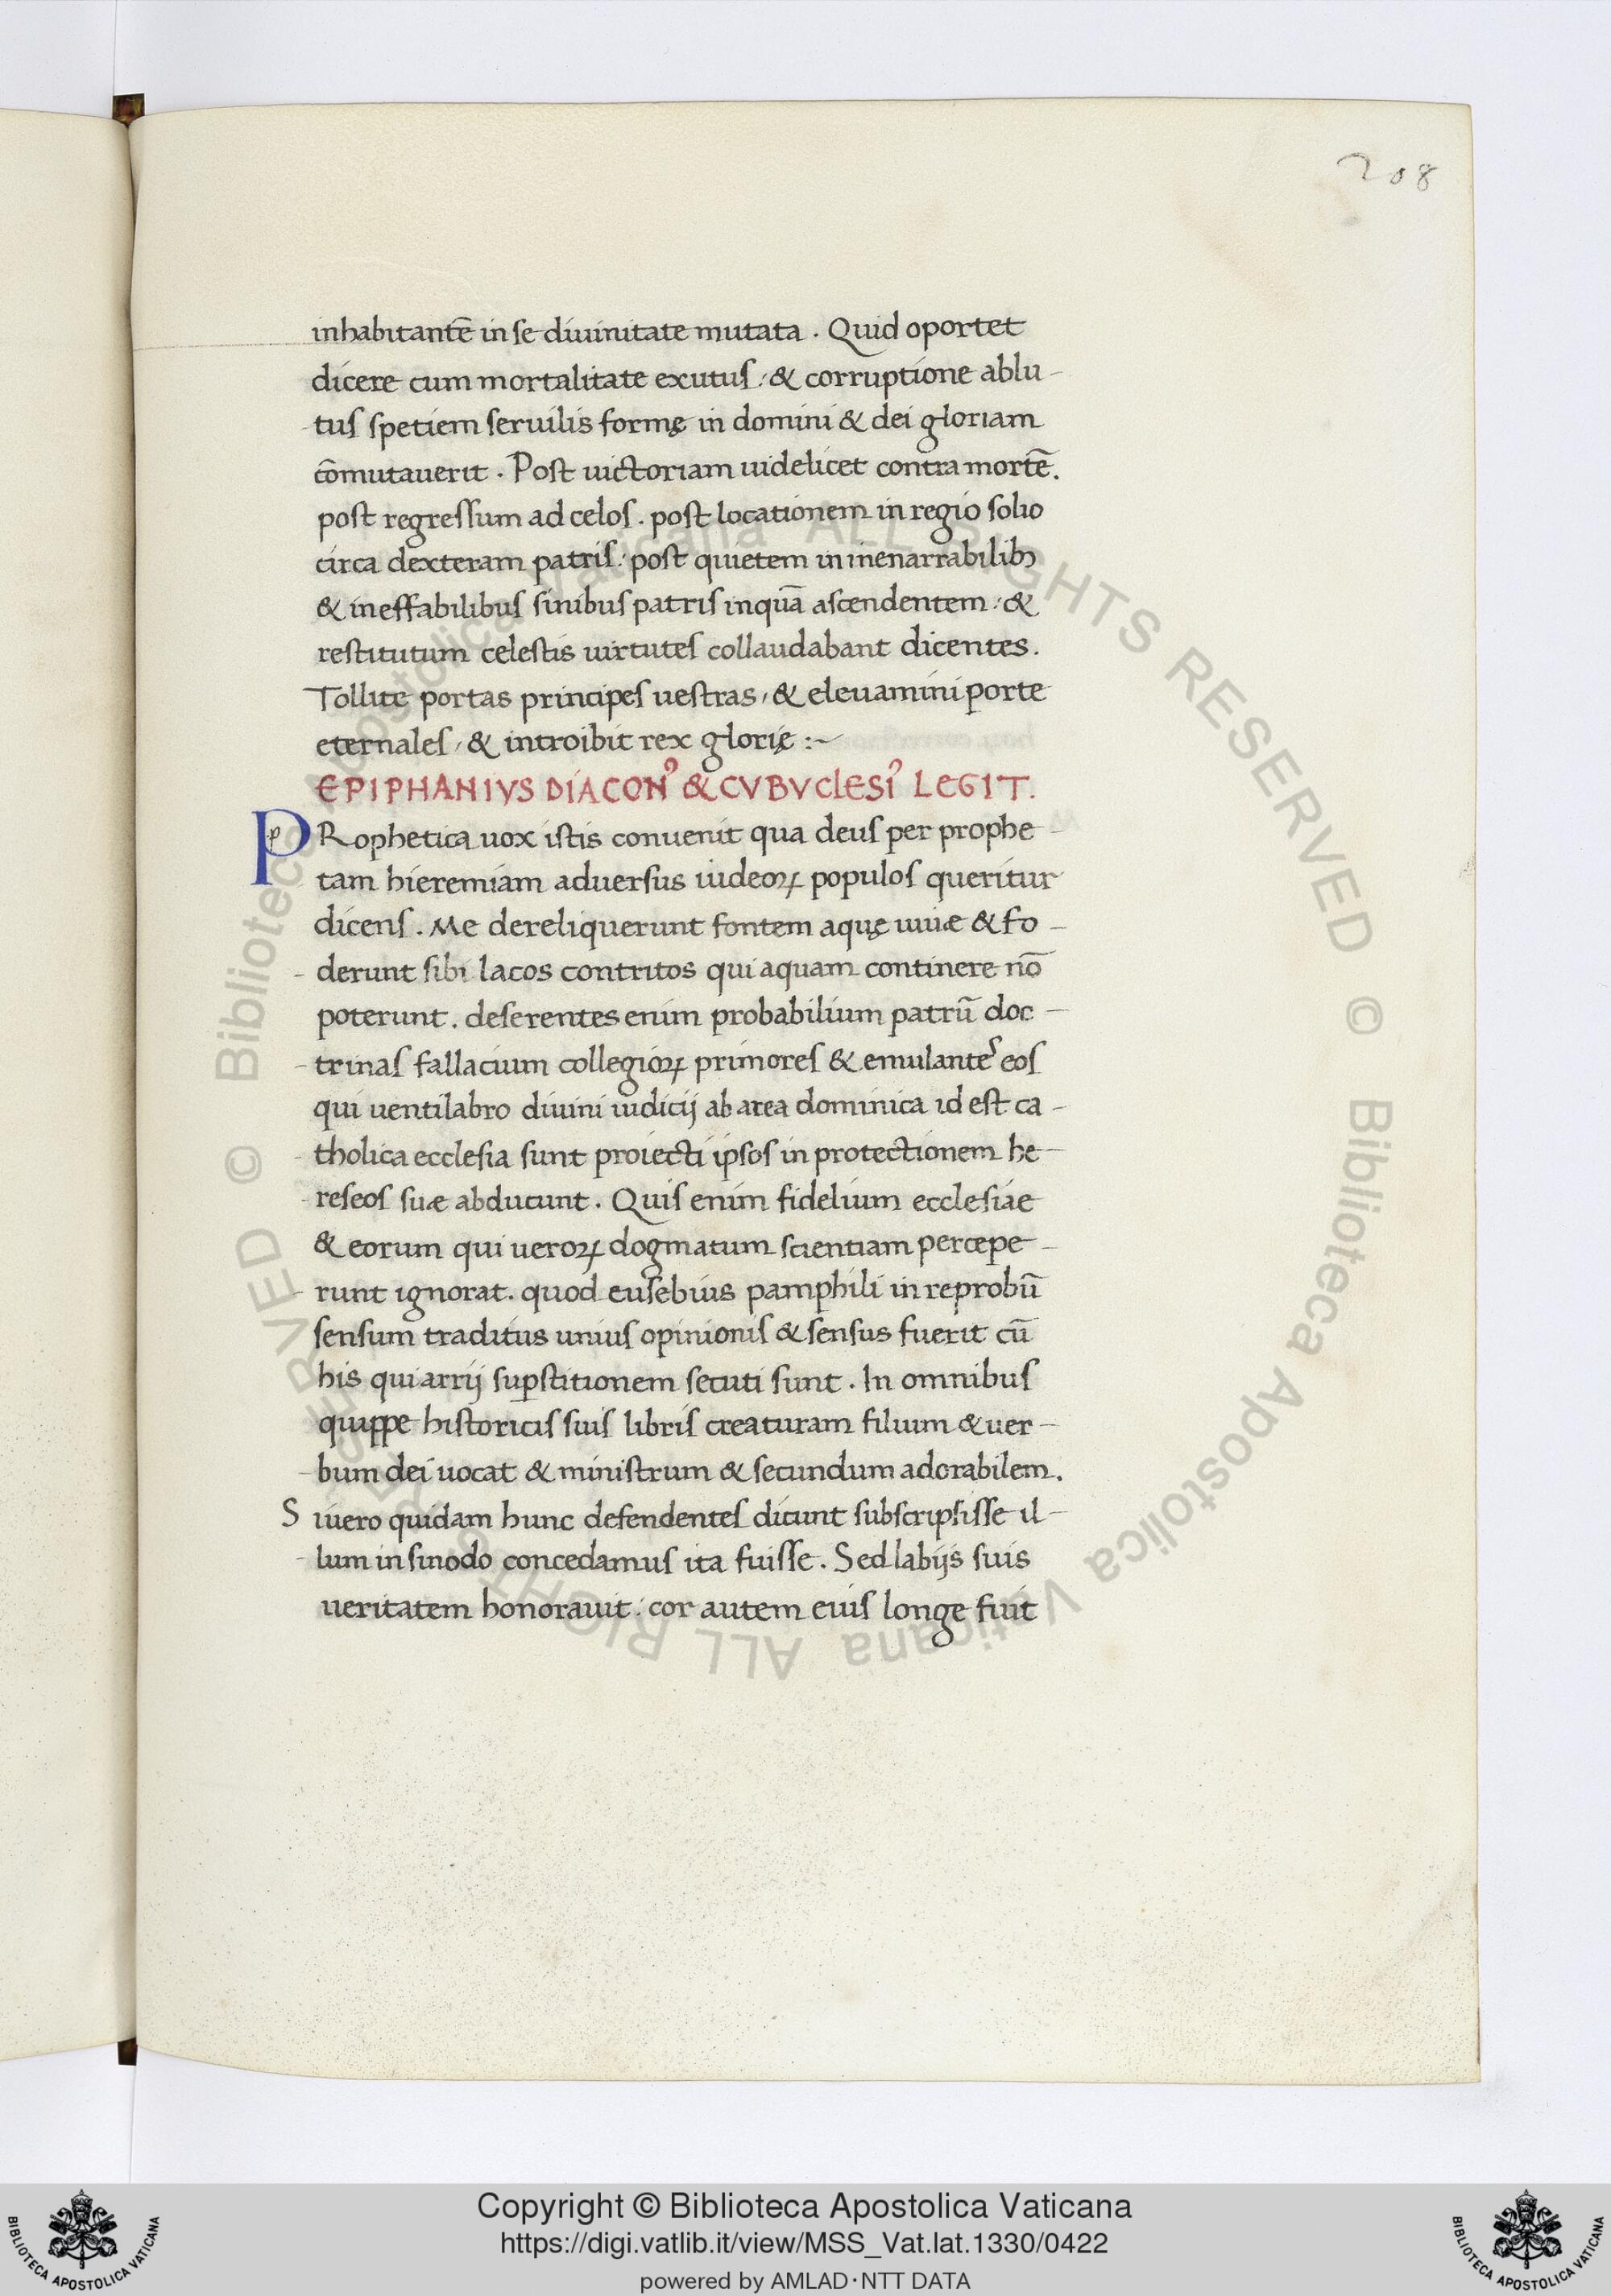 208
inhabitantē in se diuinitate mutata. Quid oportet
dicere cum mortalitate exutus: & corruptione ablu-
tus spetiem seruilis formę in domini & dei gloriam
cōmutauerit. Post uictoriam uidelicet contra mortē.
post regressum ad celos. post locationem in regio solio
circa dexteram patris: post quietem in inenarrabilibꝫ
& ineffabilibus sinibus patris inquā ascendentem: &
restitutum celestis uirtutes collaudabant dicentes.
Tollite portas principes uestras, & eleuamini porte
eternales, & introibit rex glorię :~
EPIPHANIVS DIACONꝰ & CVBVCLESIꝰ LEGIT.
PRophetica uox istis conuenit qua deus per prophe-
tam hieremiam aduersus iudeoꝝ populos queritur
dicens. Me dereliquerunt fontem aquę uiuæ & fo-
derunt sibi lacos contritos qui aquam continere nō
poterunt. deserentes enim probabilium patrū doc-
trinas fallacium collegioꝝ primores & emulantes eos
qui uentilabro diuini iudicij ab area dominica id est ca-
tholica ecclesia sunt proiecti ipsos in protectionem he-
reseos suæ abducunt. Quis enim fidelium ecclesiae
& eorum qui ueroꝝ dogmatum scientiam percepe-
runt ignorat. quod eusebius pamphili in reprobū
sensum traditus unius opinionis & sensus fuerit cū
his qui arrij suꝑstitionem secuti sunt. In omnibus
quippe historicis suis libris creaturam filium & uer-
bum dei uocat & ministrum & secundum adorabilem.
Si uero quidam hunc defendentes dicunt subscripsisse il-
lum in sinodo concedamus ita fuisse. Sed labijs suis
ueritatem honorauit: cor autem eius longe fuit
© Biblioteca Apostolica Vaticana ALL RIGHTS RESERVED © Biblioteca Apostolica Vaticana ALL RIGHTS RESERVED
Copyright © Biblioteca Apostolica Vaticana
https://digi.vatlib.it/view/MSS_Vat.lat.1330/0422
powered by AMLAD·NTT DATA
BIBLIOTECA APOSTOLICA VATICANA
BIBLIOTECA APOSTOLICA VATICANA